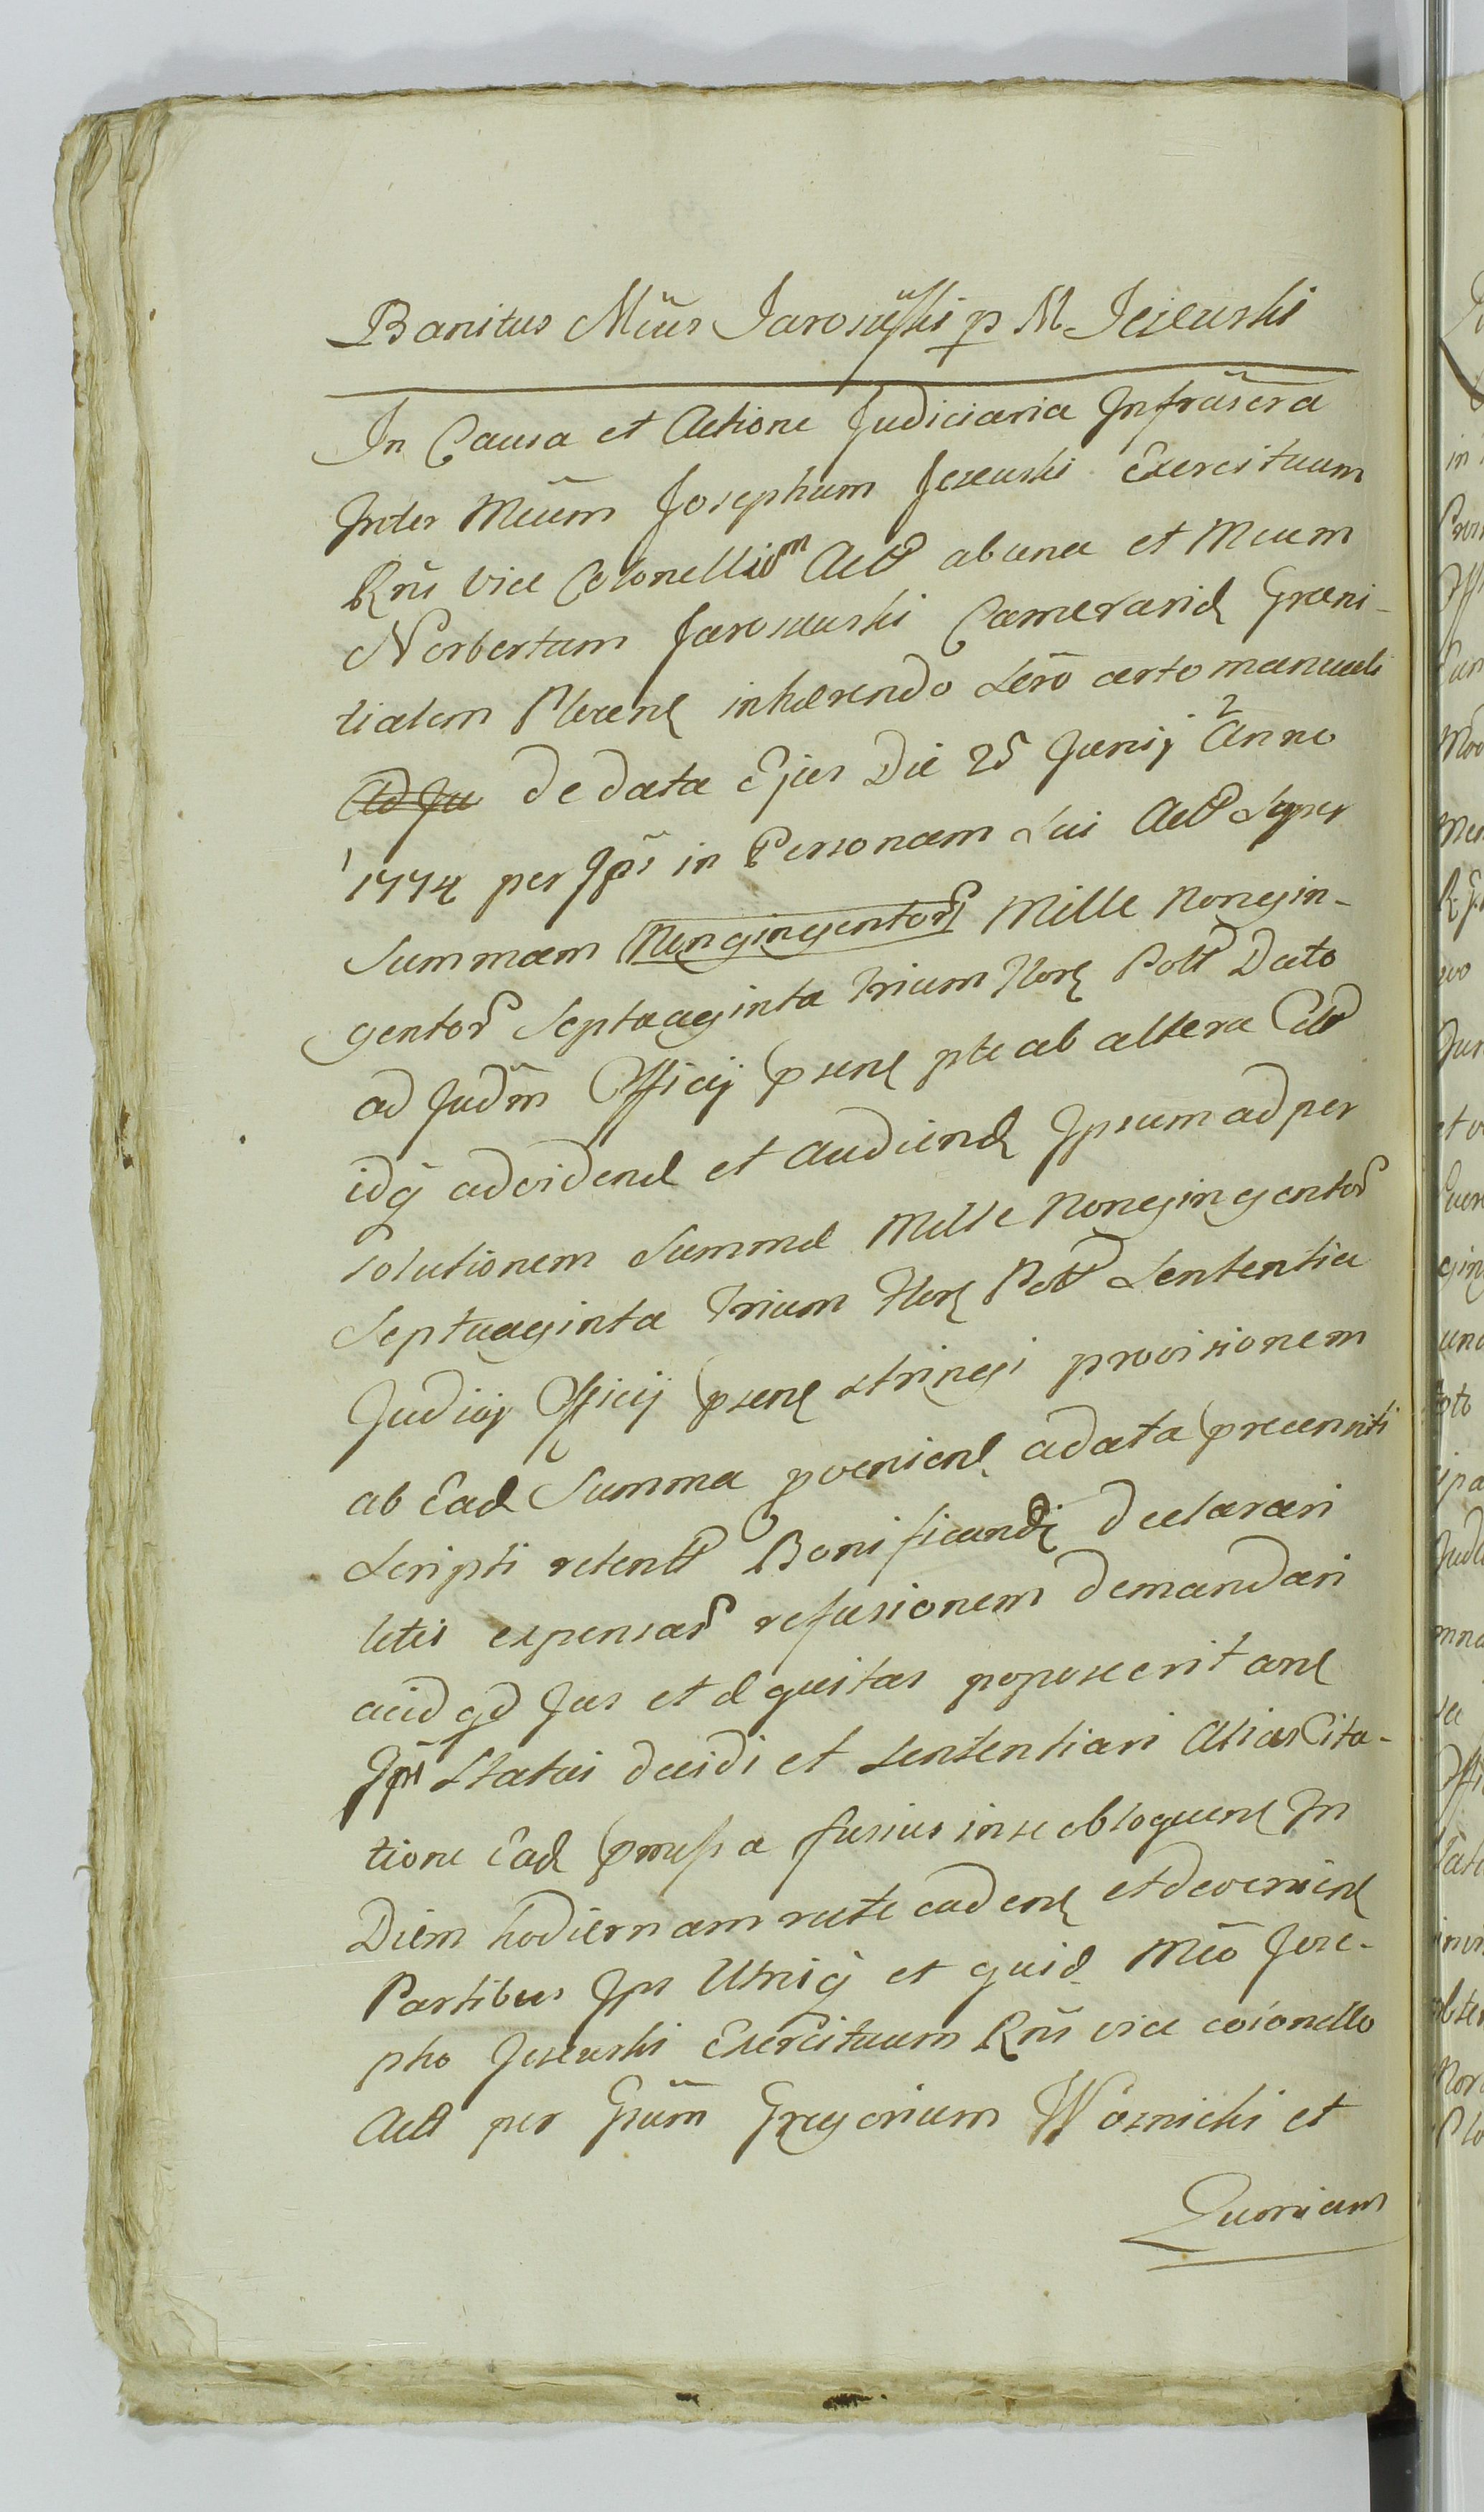 Banitus Mcus Jarosz̃ski p M Jezewski
In Causa et Actione Judiciaria Infrascra
Inter Mcum Josephum Jezewski Exercituum
Rni vice Colonellum Act ab una et Mcum
Norbertum Jaroszewski Camerarid Grani-
tialem Plocens inhærendo scro certo manuali
de data Ejus Die 25 Junij Anno
1774 per Ips in Personam sui Act super
summam Nongingentor Mille Nongin-
gentor Septuaginta trium flor Poll Dato
ad Judm Officij psens pte ab altera Citt
idq advidend et audiend Ipsum ad per
solutionem summæ Mille Nongingentor
Septuaginta trium flor Poll sententia
Judicij Officij psens stringi provisionem
ab Ead Summa pvenient a data præmniti
scripti retent Bonificandi declarari
litis expensar refusionem demandari
acid qd Jus et æquitas poposcerit cont
Ips Statui decidi et sententiari Alias Cita-
tione Ead pmissa fusius in se obloquent In
Diem hodiernam rite cadent et devenient
Partibus Ips Utriq et quid Mco Jose-
pho Jezewski Exercituum Rni vice colonello
Act per Gsum Gregorium Woznicki et
Quoniam